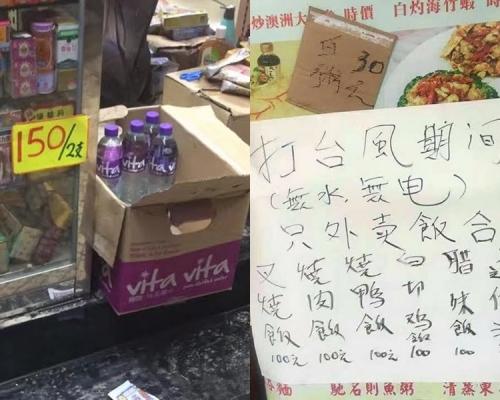 150/2支
vita
vita
vita
vita vita
炒澳洲大
時價
白灼海竹蝦
時
白
粥
30
元
打台風期间
(無水,無电)
只外卖飯合
叉燒飯
燒肉飯
燒鴨飯
白切鸡飯
腊味飯
100元
100元
100元
100
100
馳名則魚粥
清蒸東